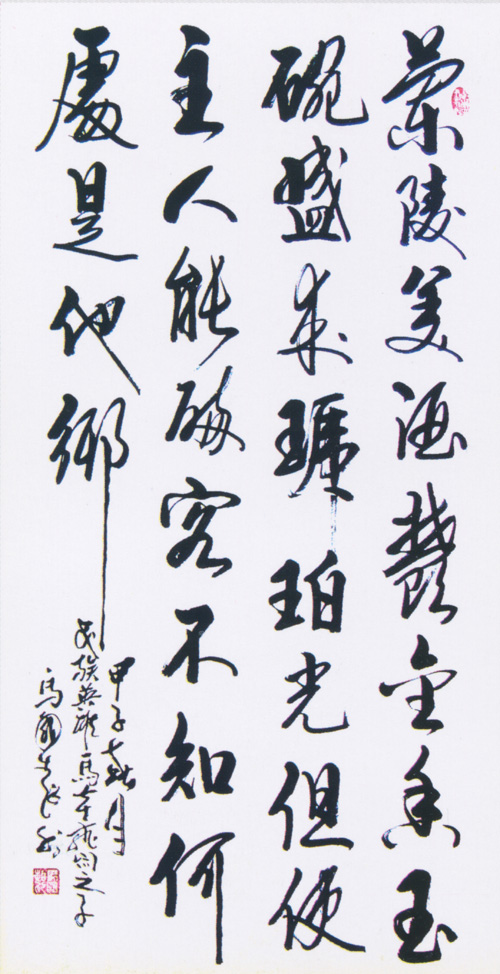 蘭陵美酒鬱金香玉
碗盛來琥珀光但使
主人能醉客不知何
處是他鄉
甲子春月
民族英雄馬本齋之子
馬國